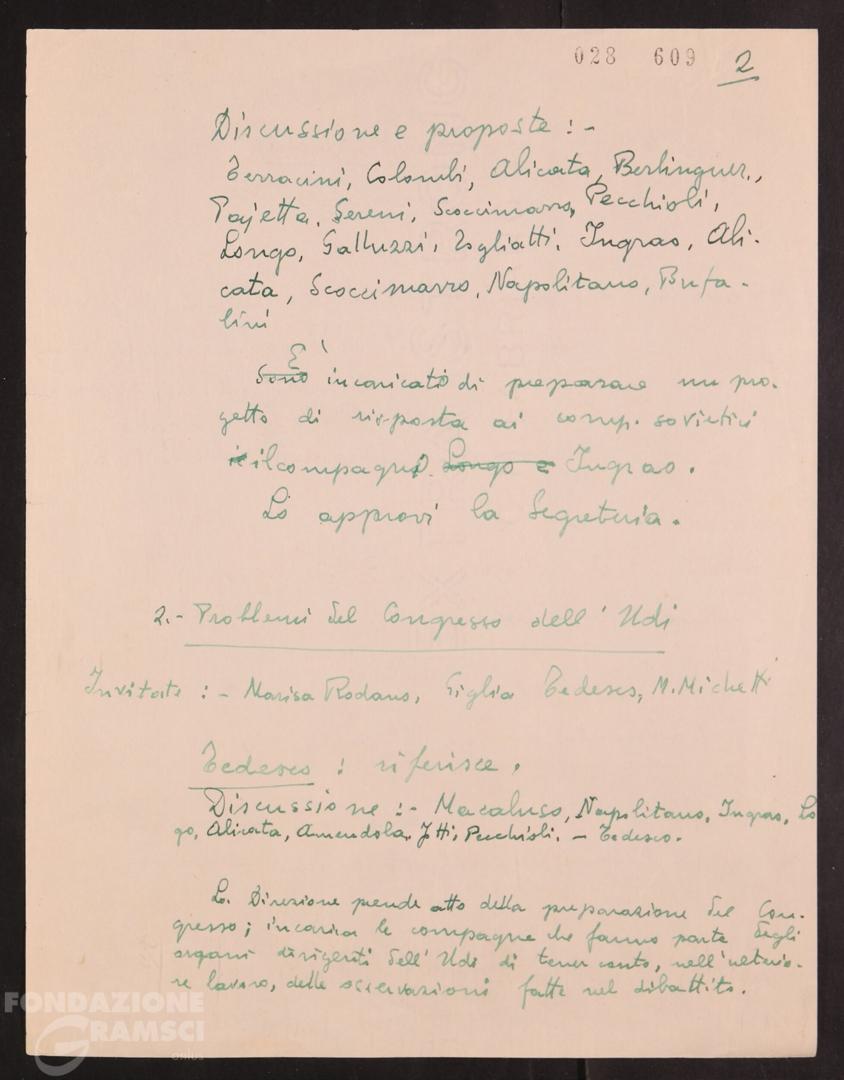 028 609 2
Discussione e proposte : -
Terracini, Colombi, Alicata, Berlinguer,
Pajetta, Sereni, Scoccimarro, Pecchioli,
Longo, Galluzzi, Togliatti, Ingrao, Ali-
cata, Scoccimarro, Napolitano, Bufa-
lini
E'
Sono incaricato di preparare un pro-
getto di risposta ai comp. sovietici
il compagno Longo e Ingrao.
Lo approvi la Segreteria.
2.- Problemi del Congresso dell'Udi
Invitate : - Marisa Rodano, Giglia Tedesco, M. Michetti
Tedesco : riferisce.
Discussione : - Macaluso, Napolitano, Ingrao, Lo
go, Alicata, Amendola, Jotti, Pecchioli. - Tedesco.
La Direzione prende atto della preparazione del Con-
gresso; incarica le compagne che fanno parte degli
organi dirigenti dell'Udi di tener conto, nell'ulterio-
re lavoro, delle osservazioni fatte nel dibattito.
FONDAZIONE
GRAMSCI
onlus